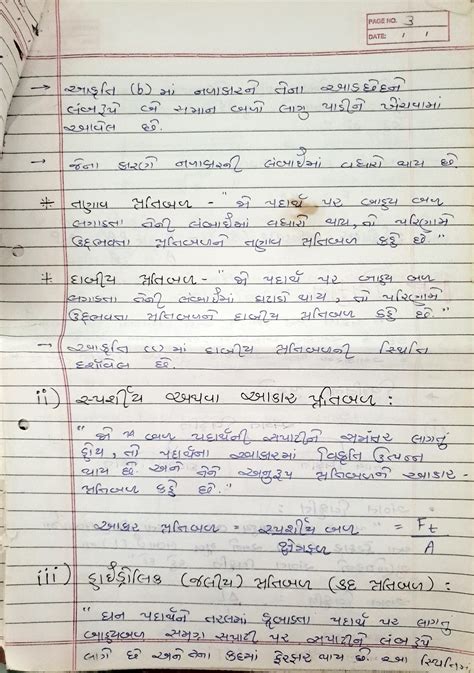 PAGE NO. 3
DATE: / /
→ આકૃતિ (b) માં નળાકારને તેના આડછેદને
લંબરૂપે બે સમાન બળો લાગુ પાડીને ખેંચવામાં
આવેલ છે.
→ જેના કારણે નળાકારની લંબાઈમાં વધારો થાય છે.
* તણાવ પ્રતિબળ - " જો પદાર્થ પર બાહ્ય બળ
લગાડતા તેની લંબાઈમાં વધારો થાય, તો પરિણામે
ઉદ્ભવતા પ્રતિબળને તણાવ પ્રતિબળ કહે છે. "
* દાબીય પ્રતિબળ - " જો પદાર્થ પર બાહ્ય બળ
લગાડતા તેની લંબાઈમાં ઘટાડો થાય, તો પરિણામે
ઉદ્ભવતા પ્રતિબળને દાબીય પ્રતિબળ કહે છે. "
→ આકૃતિ (c) માં દાબીય પ્રતિબળની સ્થિતિ
દર્શાવેલ છે.
ii) સ્પર્શીય અથવા આકાર પ્રતિબળ :
" જો બળ પદાર્થની સપાટીને સમાંતર લાગતું
હોય, તો પદાર્થના આકારમાં વિકૃતિ ઉત્પન્ન
થાય છે. અને તેને અનુરૂપ પ્રતિબળને આકાર -
પ્રતિબળ કહે છે. "
આકાર પ્રતિબળ = સ્પર્શીય બળ / ક્ષેત્રફળ = Ft / A
iii) હાઈડ્રોલિક (જલીય) પ્રતિબળ (કદ પ્રતિબળ) :
" ઘન પદાર્થને તરલમાં ડૂબાડતા પદાર્થ પર લાગતુ
બાહ્યબળ સમગ્ર સપાટી પર સપાટીને લંબરૂપે
લાગે છે અને તેના કદમાં ફેરફાર થાય છે. આ સ્થિતિમાં